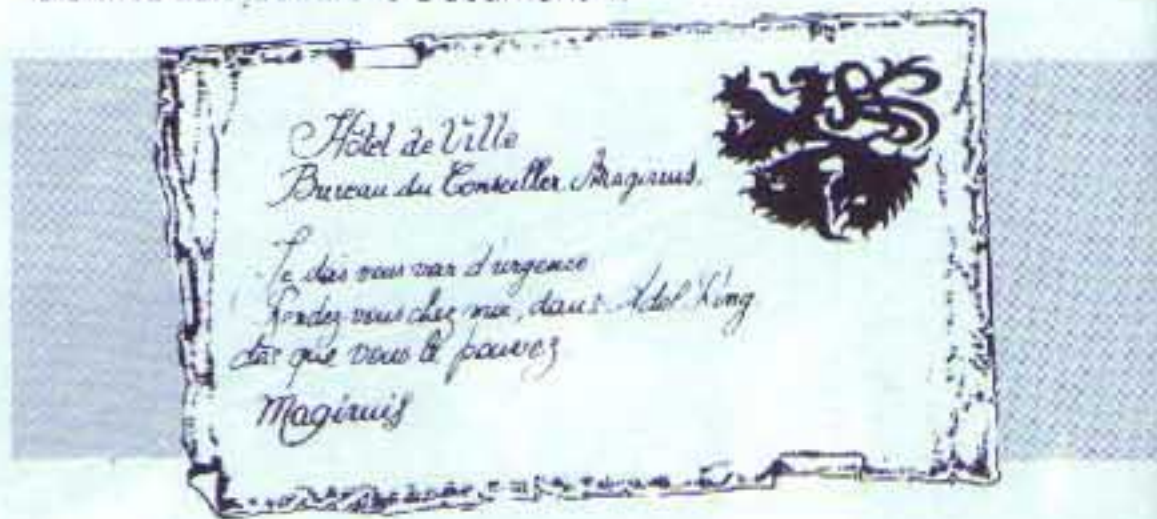 Hôtel de Ville
Bureau du Conseiller Magirius.
Je dois vous voir d'urgence
Rendez-vous chez moi, dans Adel King
dès que vous le pouvez
Magirius